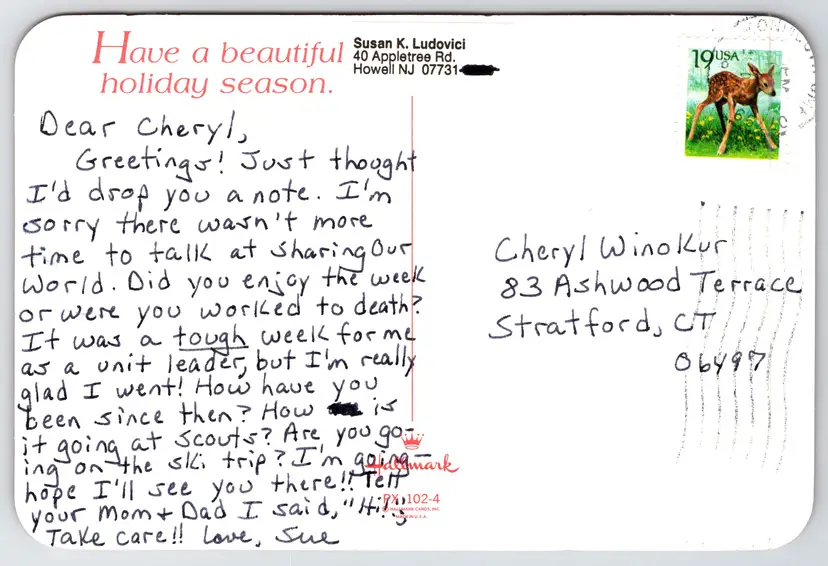 Have a beautiful
holiday season.
Susan K. Ludovici
40 Appletree Rd.
Howell NJ 07731-
19 USA
Dear Cheryl,
Greetings! Just thought
I'd drop you a note. I'm
sorry there wasn't more
time to talk at Sharing Our
World. Did you enjoy the week
or were you worked to death?
It was a tough week for me
as a unit leader, but I'm really
glad I went! How have you
been since then? How is
it going at Scouts? Are you go-
ing on the ski trip? I'm going-
hope I'll see you there!! Tell
your Mom + Dad I said, "Hi!"
Take care!! Love, Sue
Cheryl Winokur
83 Ashwood Terrace
Stratford, CT
06497
Hallmark
PX 102-4
© HALLMARK CARDS, INC.
MADE IN U.S.A.